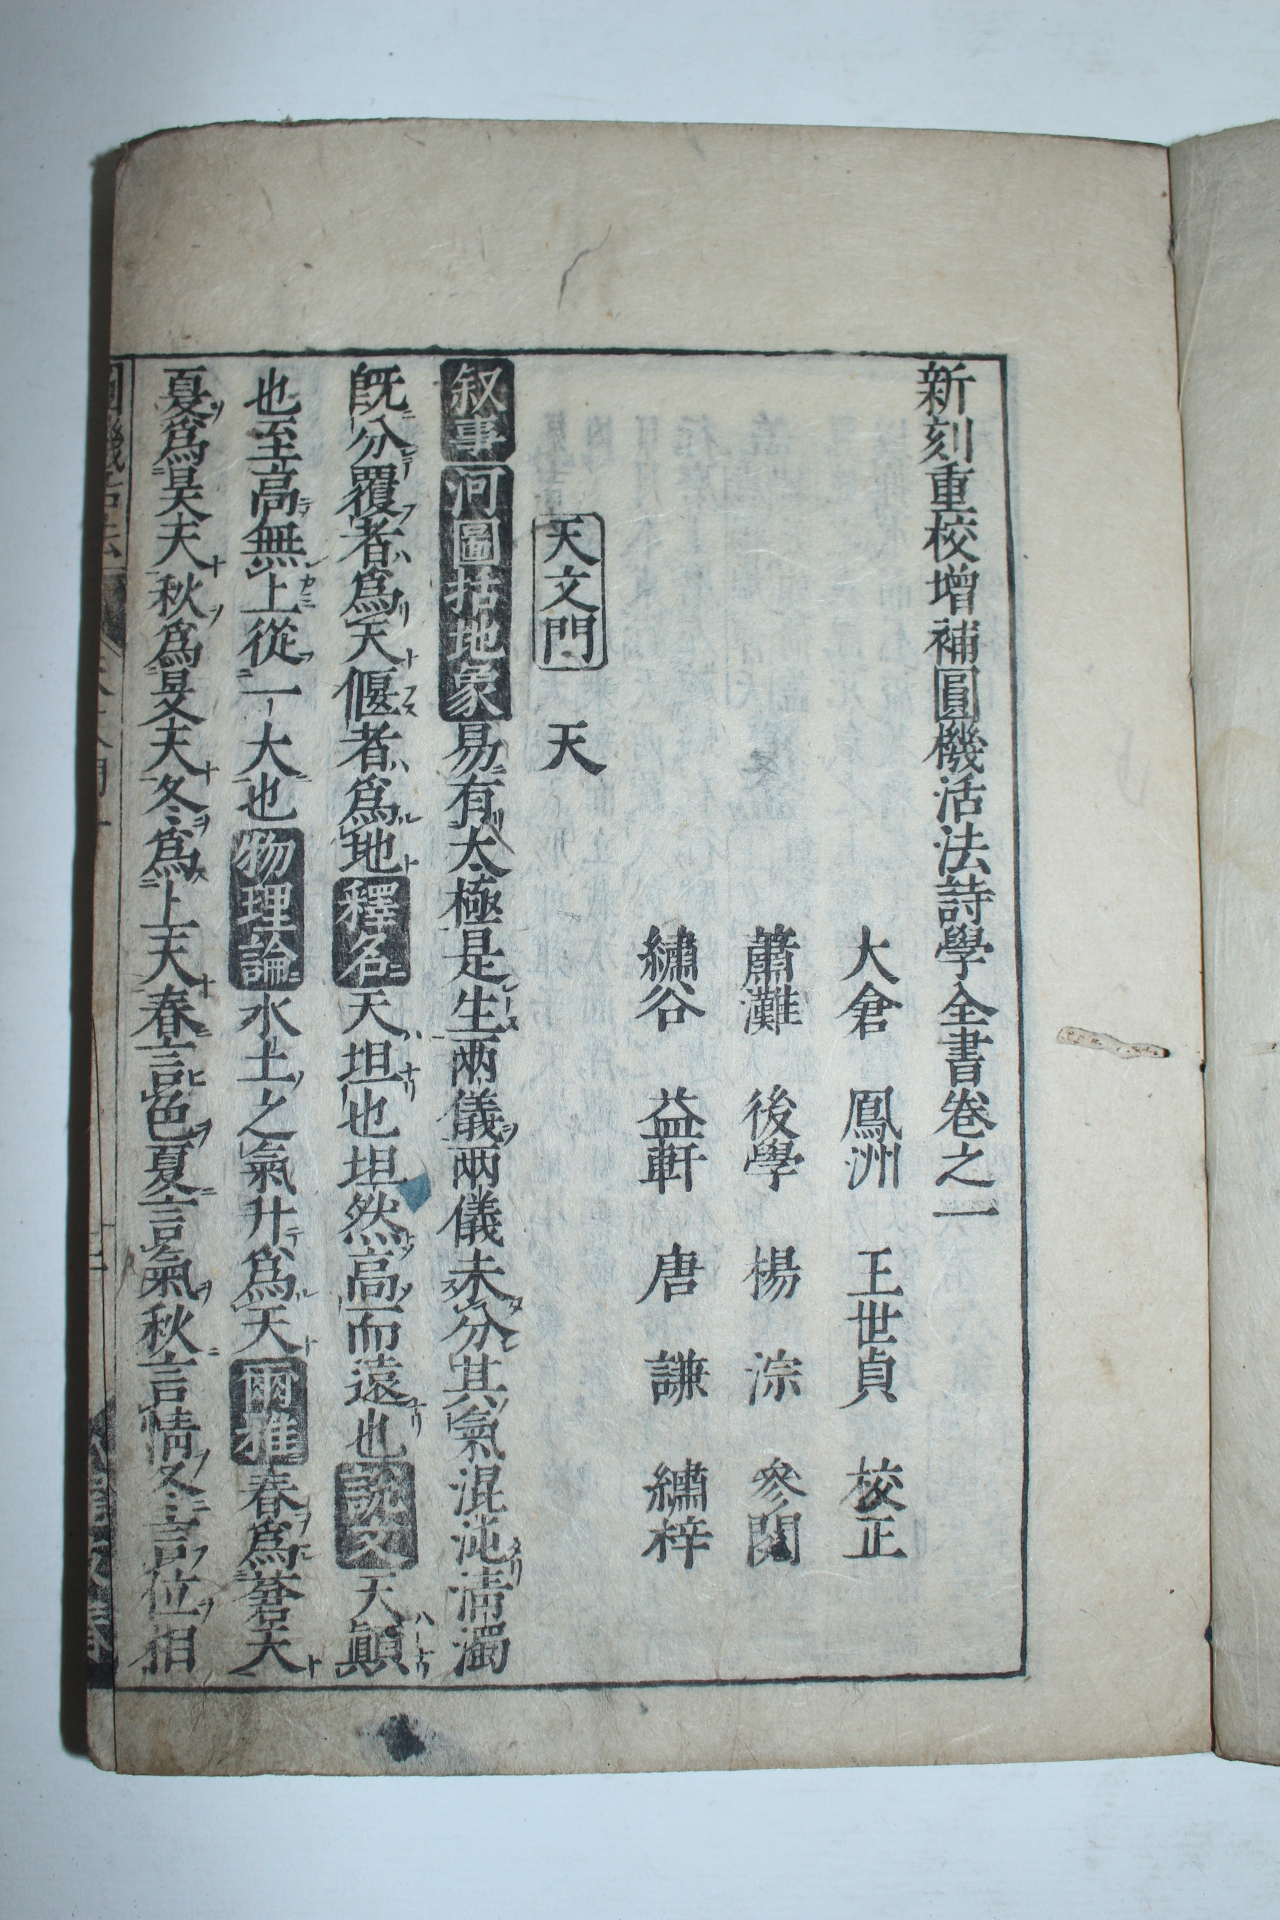 新刻重校增補圓機活法詩學全書卷之一
大倉 鳳洲 王世貞 校正
蕭灘 後學 楊淙 參閱
繡谷 益軒 唐謙 繡梓
天文門 天
叙事 河圖括地象 易有太極是生兩儀兩儀未分其氣混沌淸濁
旣分覆者爲天偃者爲地 釋名 天坦也坦然高而遠也 說文 天顚
也至高無上從一大也 物理論 水土之氣升爲天 爾雅 春爲蒼天
夏爲昊天秋爲旻天冬爲上天春言色夏言氣秋言情冬言位相